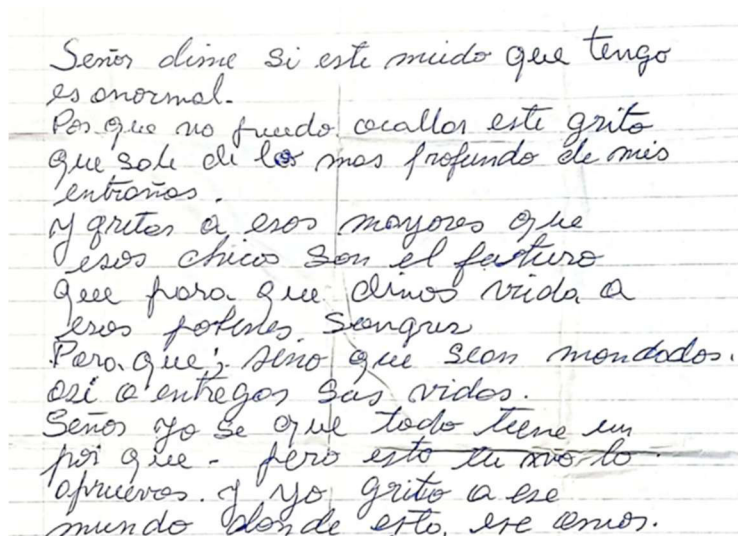 Señor dime si este miedo que tengo
es anormal.
Por que no puedo acallar este grito
que sale de lo mas profundo de mis
entrañas.
y gritar a esos mayores que
esos chicos son el futuro
que para que dimos vida a
esas sangres
Para que; sino que sean mandados.
asi a entregar sus vidas.
Señor yo se que todo tiene un
por que - pero esto tu no lo
apruevas. y yo grito a ese
mundo donde esta, ese amor.